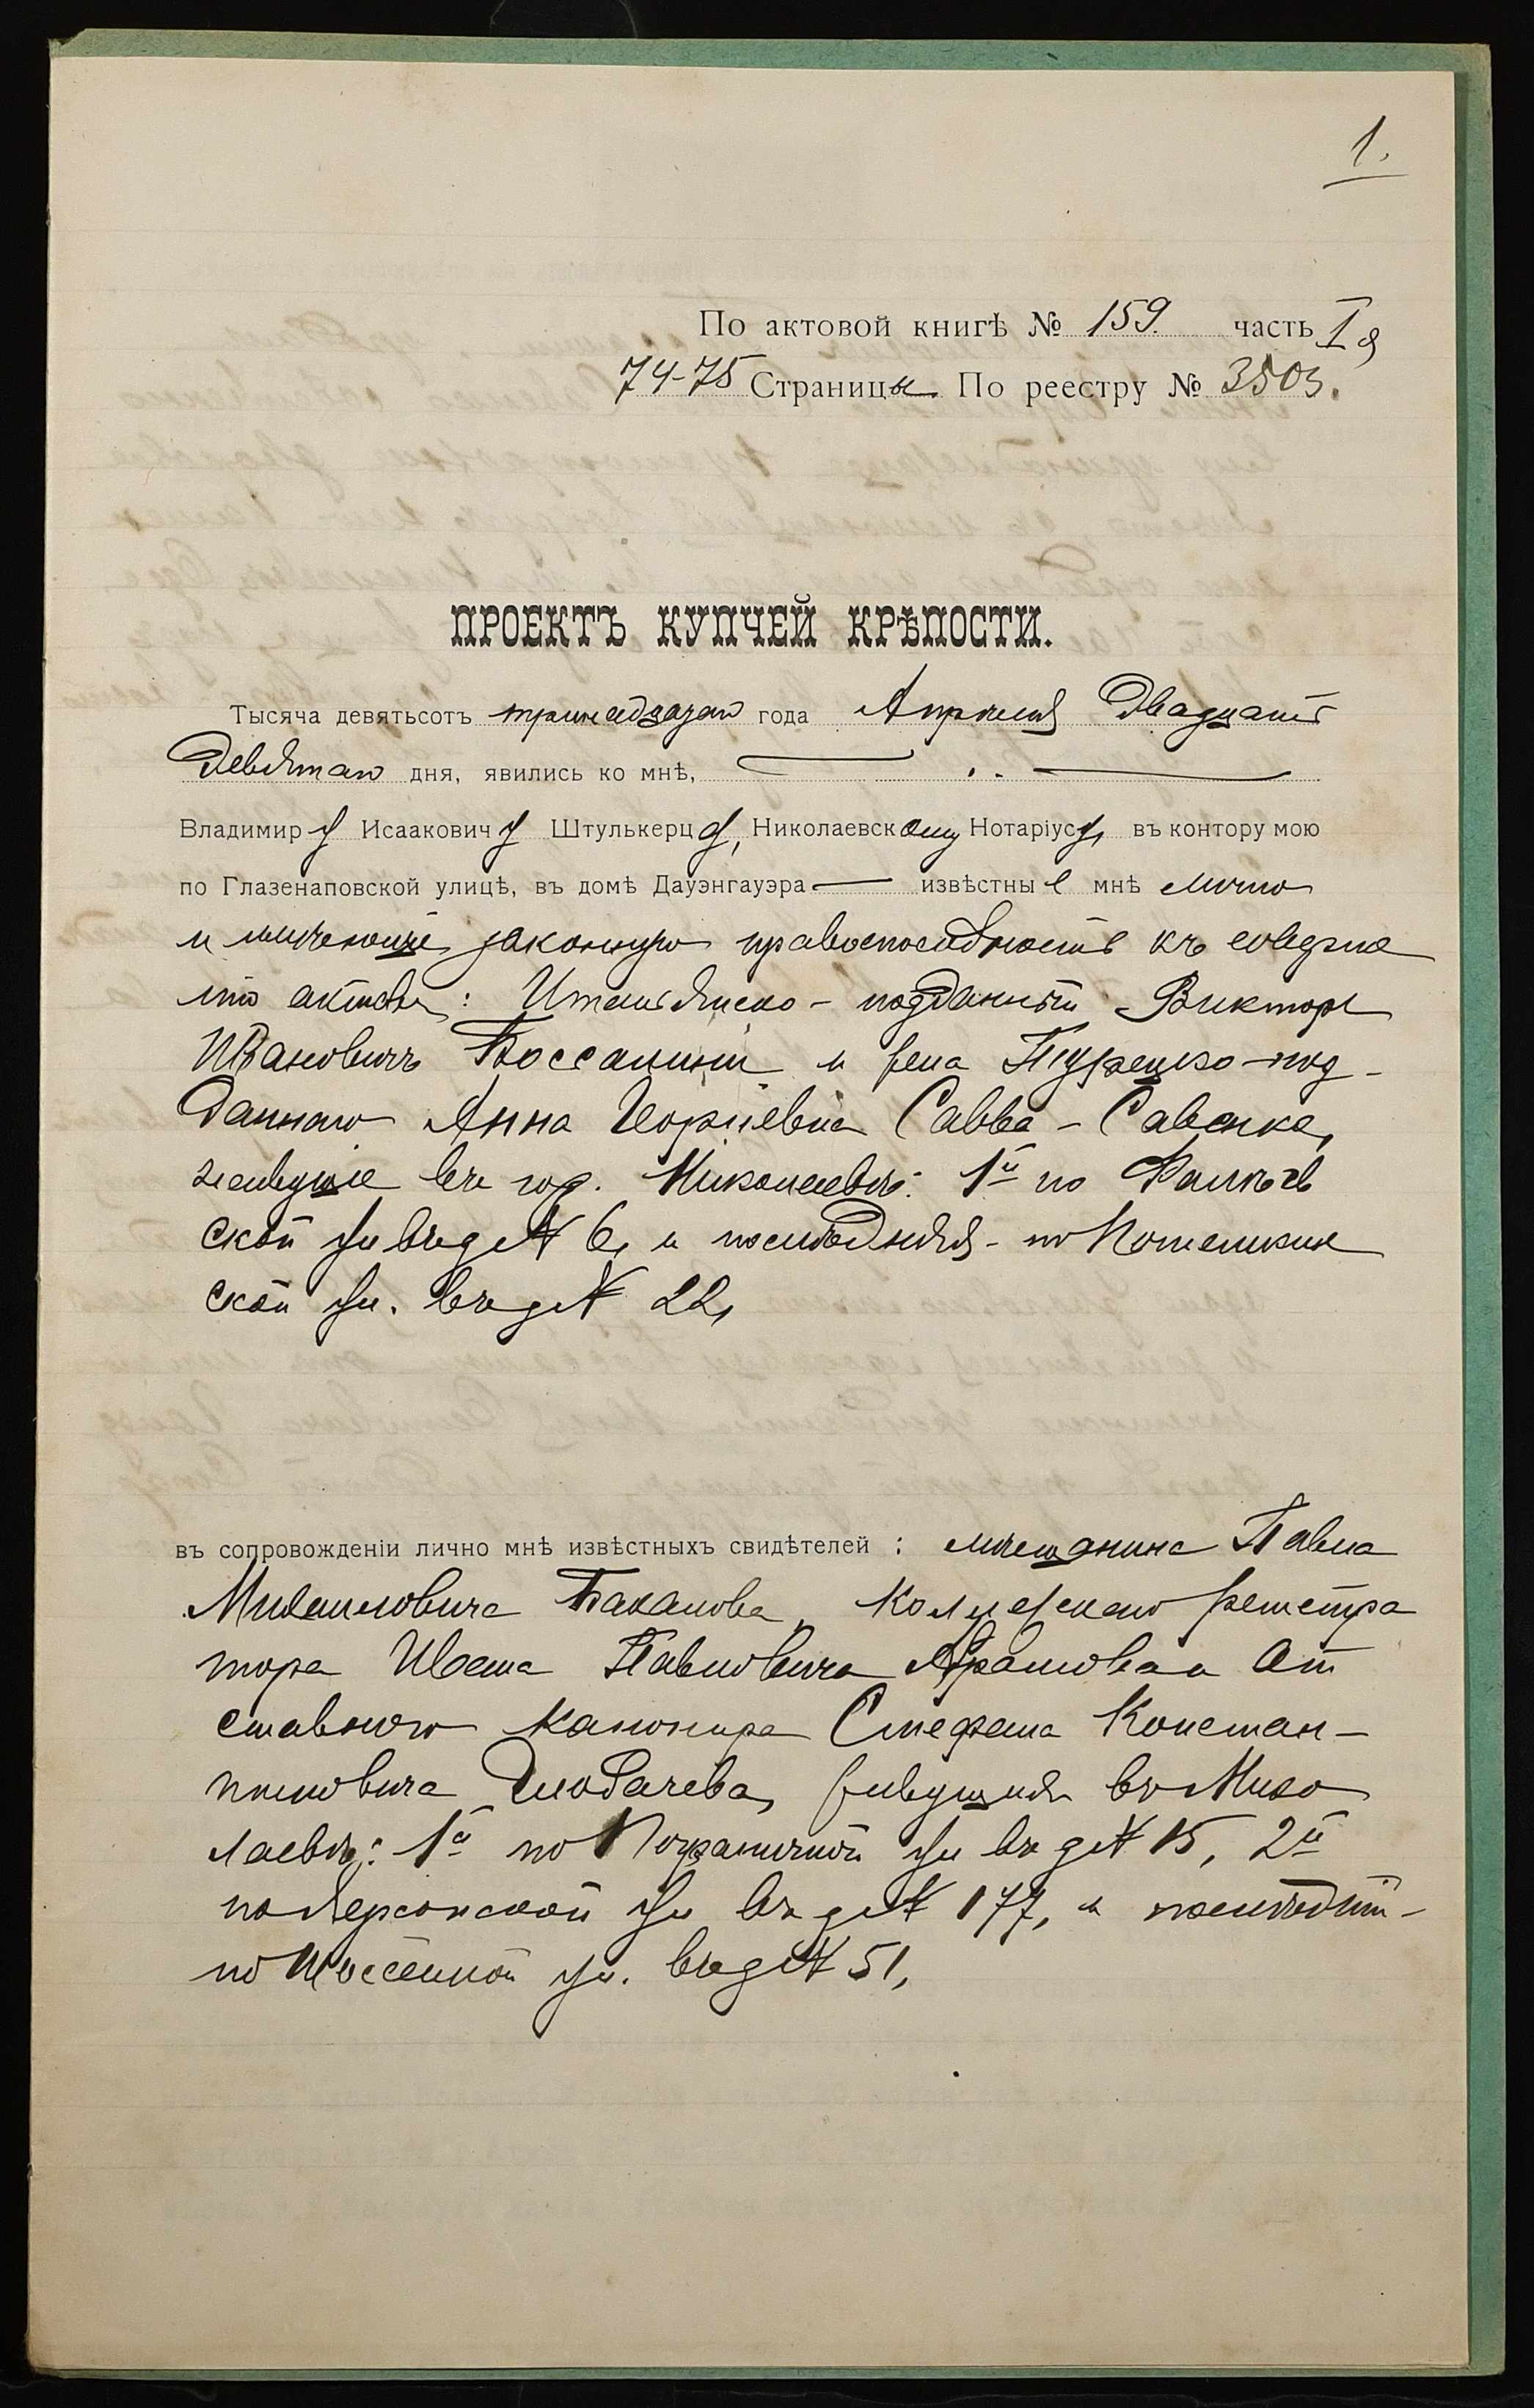 1.
По актовой книгѣ № 159. часть I я
74-75 Страницы. По реестру № 3503.
ПРОЕКТЪ КУПЧЕЙ КРѢПОСТИ.
Тысяча девятьсотъ тринадцатаго года Апрѣля двадцать
девятаго дня, явились ко мнѣ,
Владимиру Исааковичу Штулькерцу, Николаевскому Нотаріусу, въ контору мою
по Глазенаповской улицѣ, въ домѣ Дауэнгауэра извѣстные мнѣ лично
и имѣющіе законную правоспособность къ соверше
нію актовъ: Итальянско-подданный Викторъ
Ивановичъ Боссалини и жена Турецко-под-
даннаго Анна Георгіевна Савва-Савенка,
живущіе въ гор. Николаевѣ: 1й по Фалѣев
ской ул въ д № 6, и послѣдняя - по Потемкин
ской ул. въ д № 22,
въ сопровожденіи лично мнѣ извѣстныхъ свидѣтелей: мѣщанина Павла
Михайловича Баканова, Коллежскаго Регистра
тора Ивана Павловича и От
ставного Канонира Стефана Констан-
тиновича живущихъ въ Нико
лаевѣ: 1й по Пограничной ул въ д № 15, 2й
по Херсонской ул въ д № 177, и послѣдній -
по Шоссейной ул. въ д № 51,